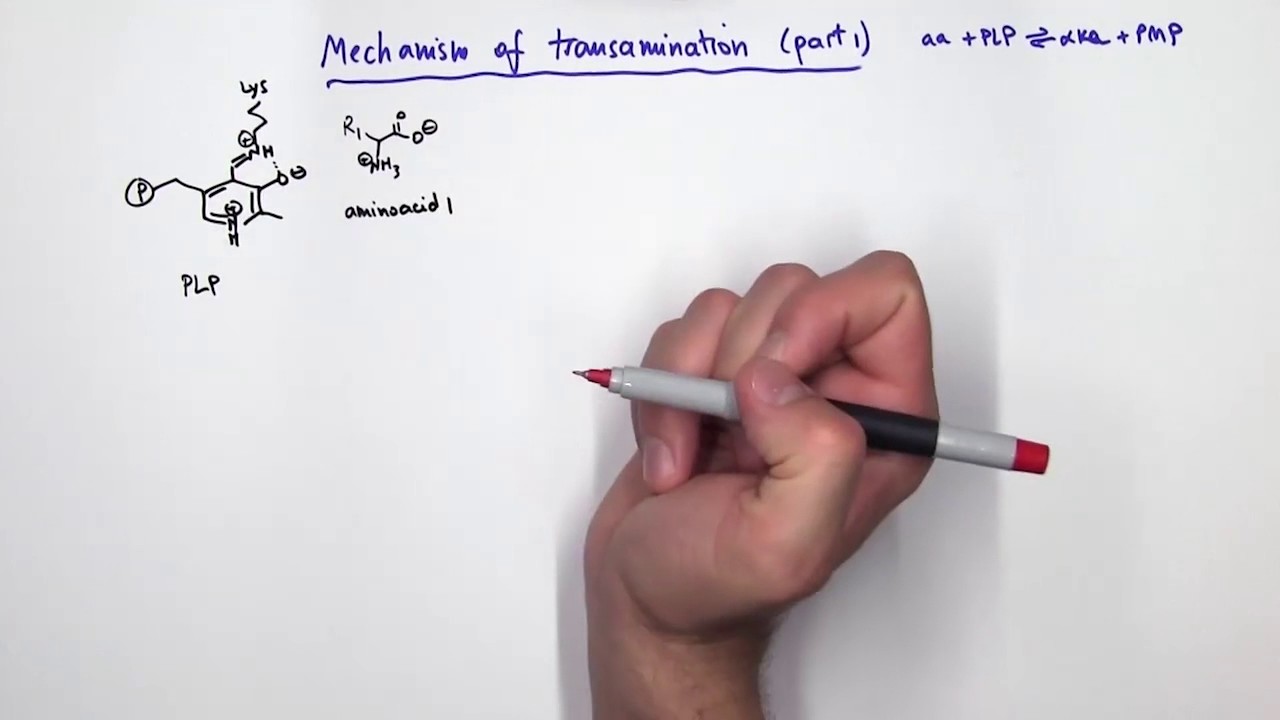 Mechanism of transamination (part 1)
aa + PLP ⇌ αka + PMP
Lys
⊕
N H
O ⊖
P
⊕
N
H
PLP
R1
O
O ⊖
⊕NH3
aminoacid 1